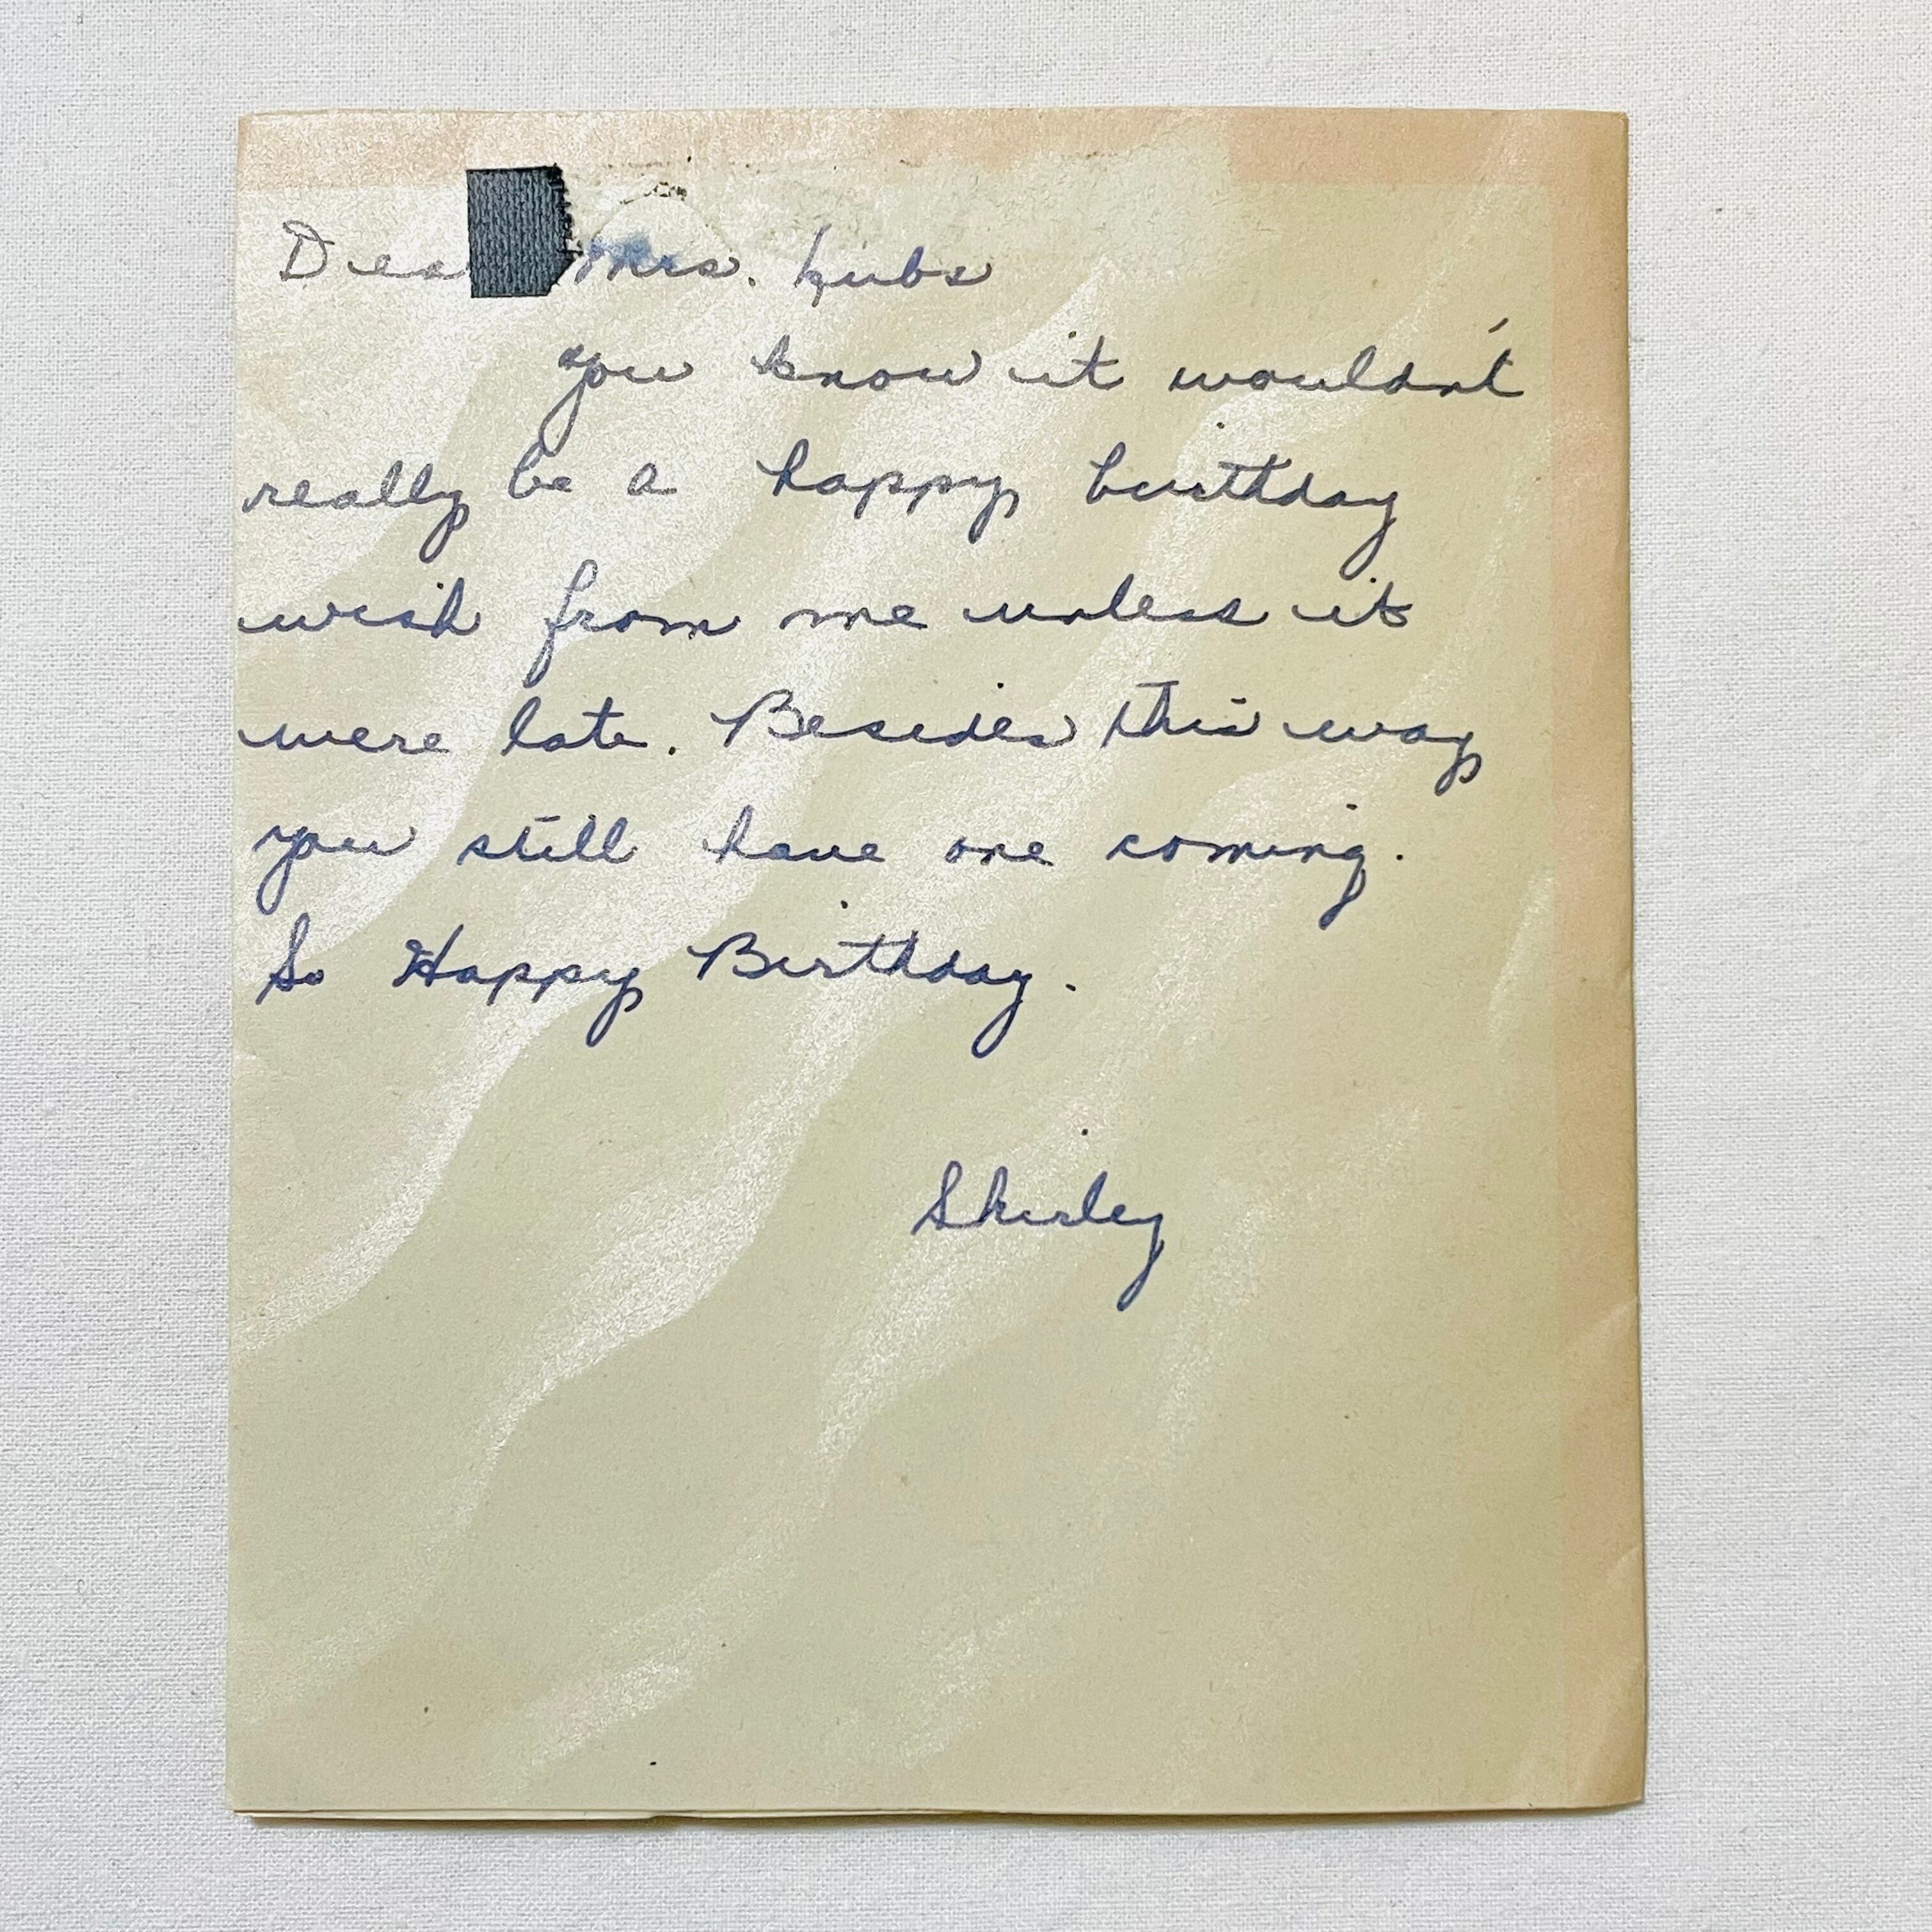 Dea Mrs. Kubs
you know it wouldn't
really be a happy birthday
wish from me unless it
were late. Besides this way
you still have one coming.
So Happy Birthday.
Shirley